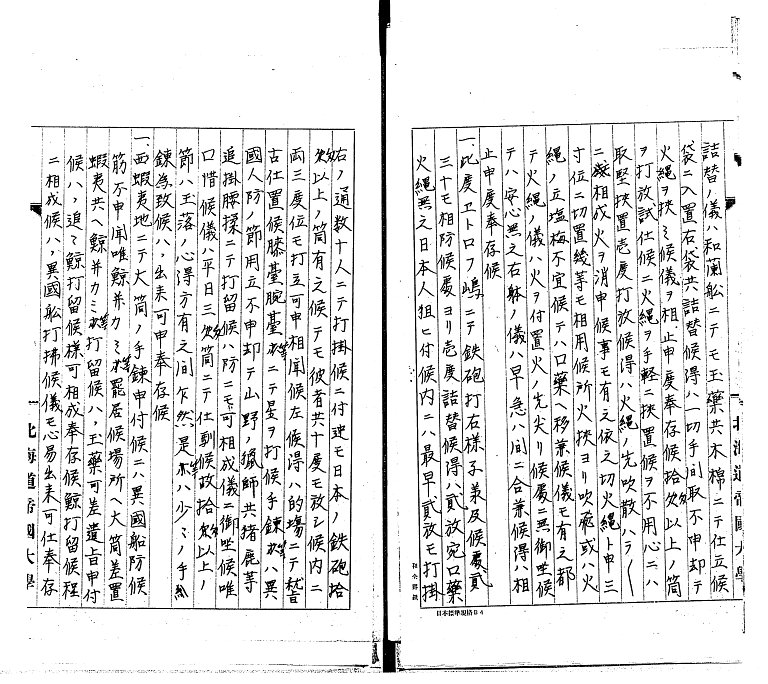 詰替ノ儀ハ和蘭舩ニテモ玉薬共木綿ニテ仕立候
袋ニ入置右袋共詰替候得ハ一切手間取不申却テ
火縄ヲ挟ミ候儀ヲ相止申度奉存候拾匁以上ノ筒
ヲ打放試仕候ニ火縄ヲ手軽ニ挟置候ヲ不用心ニハ
取堅挟置壱度打放候得ハ火縄ノ先吹散ハラ〱
ニ相成火ヲ消申候事モ有之依之切火縄ト申三
寸位ニ切置絞等モ相用候所火挟ヨリ吹 或ハ火
縄ノ立塩梅不宜候テハ口薬ヘ移兼候儀モ有之都
テ火縄ノ儀ハ火ヲ付置火ノ先尖リ候處ニ無御坐候
テハ安心無之右躰ノ儀ハ早急ハ間ニ合兼候得ハ相
止申度奉存候
一此度ヱトロフ嶋ニテ鉄砲打右様子義及候處貳
三十モ相防候處ヨリ壱度詰替候得ハ貳放宛口薬
火縄無之日本人狙ヒ付候内ニハ最早貳放モ打掛
右ノ通数十人ニテ打掛候ニ付迚モ日本ノ鉄砲拾
匁以上ノ筒有之候テモ彼者共十度モ放シ候内ニ
両三度位モ打立可申相聞候左候得ハ的場ニテ稽
古仕置候膝臺腕臺等ニテ晏ヲ打候手錬等ハ異
國人防ノ節用立不申却テ山野ノ猟師共猪鹿等
追掛腰撓ニテ打留候ハ防ニモ可相成儀ニ御坐候唯
口惜候儀ハ平日三匁筒ニテ仕馴候故拾匁以上ノ
節ハ王落ノ心得方有之間乍然是亦ハ少ミノ手
錬為致候ハ出来可申奉存候
一西蝦夷地ニテ大筒ノ手錬申付候ニハ異國船防候
筋不申聞唯鯨并カミ等罷居候場所ヘ大筒差置
蝦夷共ヘ鯨并カミ等打留候ハ玉薬可差遣旨申付
候ハ追ミ鯨打留候様可相成奉存候鯨打留候程
ニ相成候ハ異國舩打拂候儀モ心易出来可仕奉存
北海道帝國大學
北海道帝國大學
日本標準規格B4